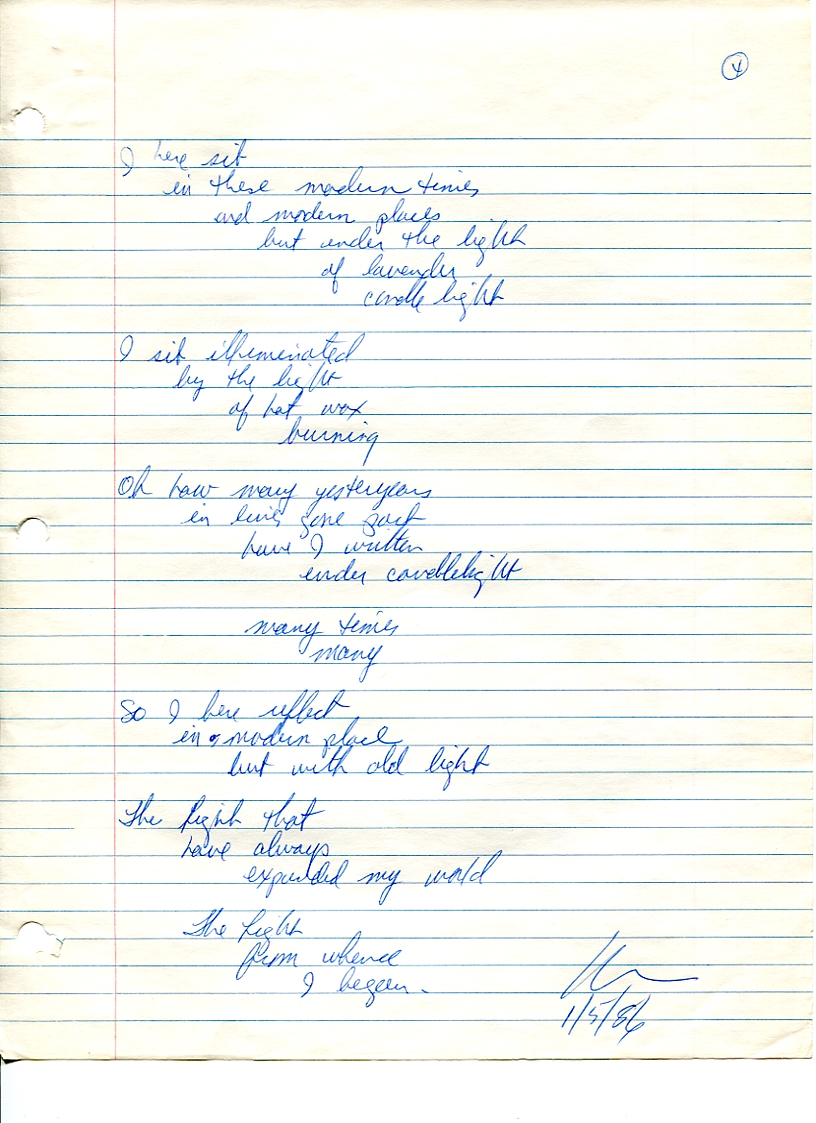 4
I here sit
in these modern times
and modern places
but under the light
of lavender
candle light
I sit illuminated
by the light
of hot wax
burning
Oh how many yesteryears
in lives gone past
have I written
under candlelight
many times
many
So I here reflect
in a modern place
but with old light
The light that
have always
expanded my world
The light
from whence
I began.
1/5/86